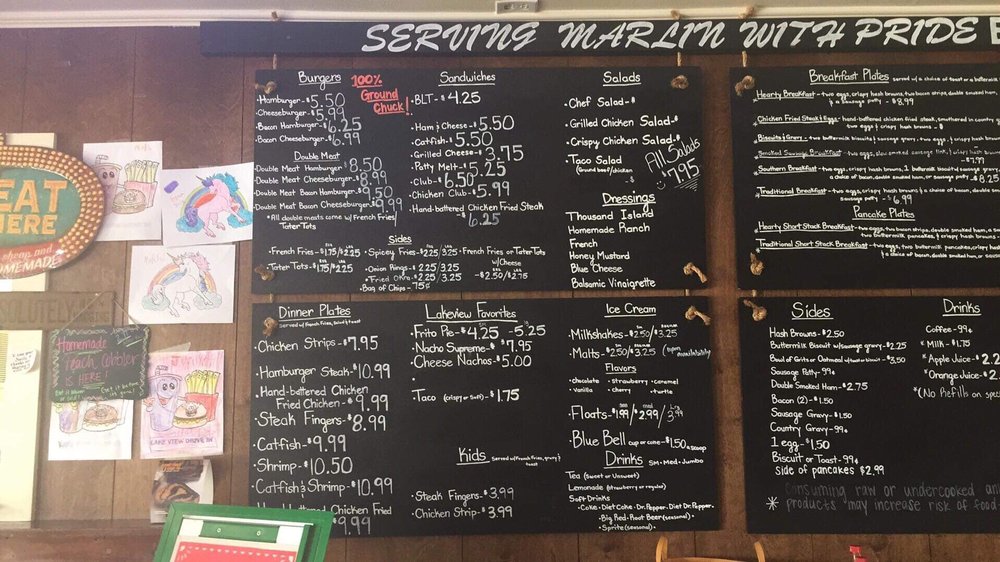 SERVING MARLIN WITH PRIDE
EAT
HERE
cheap and
HOMEMADE
Homemade
Peach Cobbler
IS HERE!
LAKE VIEW DRIVE IN
Burgers
100%
Ground
Chuck!
·Hamburger-$5.50
·Cheeseburger-$5.99
·Bacon Hamburger-$6.25
·Bacon Cheeseburger-$6.99
Double Meat
·Double Meat Hamburger-$8.50
·Double Meat Cheeseburger-$8.99
·Double Meat Bacon Hamburger-$9.50
·Double Meat Bacon Cheeseburger-$9.99
*All double meats come w/ French Fries/
Tater Tots
Sandwiches
·BLT-$4.25
·Ham & Cheese-$5.50
·Catfish-$5.50
·Grilled Cheese-$3.75
·Patty Melt-$5.25
·Club-$6.50
·Chicken Club-$5.99
·Hand-battered Chicken Fried Steak
$6.25
Sides
·French Fries-$1.75/$2.25
·Tater Tots-$1.75/$2.25
·Spicey Fries-$2.25/3.25
·Onion Rings-$2.25/3.25
·Fried Okra-$2.25/3.25
·Bag of Chips-75¢
·French Fries or Tater Tots
w/Cheese
-$2.50/$2.75
Salads
·Chef Salad-$
·Grilled Chicken Salad-$
·Crispy Chicken Salad-$
·Taco Salad
(Ground beef/chicken)
$
All Salads
$7.95
Dressings
Thousand Island
Homemade Ranch
French
Honey Mustard
Blue Cheese
Balsamic Vinaigrette
Breakfast Plates served w/ a choice of toast or a buttermilk
·Hearty Breakfast-two eggs, crispy hash browns, two bacon strips, double smoked ham,
& a sausage patty -$8.99
·Chicken Fried Steak & Eggs- hand-battered chicken fried steak, smothered in country
two eggs & crispy hash browns -$
·Biscuits & Gravy-two buttermilk biscuits & sausage gravy, two eggs, & crispy hash browns
·Smoked Sausage Breakfast-two eggs, slow smoked sausage link, & crispy hash browns
-$7.99
·Southern Breakfast-two eggs, crispy hash browns, 1 buttermilk biscuit w/ sausage gravy,
a choice of bacon, double smoked ham, or sausage patty -$8.25
·Traditional Breakfast-two eggs, crispy hash browns & a choice of bacon, double
-$6.99
Pancake Plates
·Hearty Short Stack Breakfast-two eggs, two bacon strips, double smoked ham, a
two buttermilk pancakes, & crispy hash browns-
·Traditional Short Stack Breakfast-two eggs, two buttermilk pancakes, crispy hash
& a choice of bacon, double smoked ham, or
Dinner Plates
Served w/ French Fries, Salad & toast
·Chicken Strips-$7.95
·Hamburger Steak-$10.99
·Hand-battered Chicken
Fried Chicken-$9.99
·Steak Fingers-$8.99
·Catfish-$9.99
·Shrimp-$10.50
·Catfish & Shrimp-$10.99
Chicken Fried
$9.99
Lakeview Favorites
·Frito Pie-$4.25-5.25
·Nacho Supreme-$7.95
·Cheese Nachos-$5.00
·Taco (crispy or soft)-$1.75
Kids Served w/ French Fries, gravy &
toast
·Steak Fingers-$3.99
·Chicken Strip-$3.99
Ice Cream
·Milkshakes-$2.50/$3.25
·Malts-$2.50/$3.25 (upon availability)
Flavors
·chocolate ·strawberry ·caramel
·Vanilla ·cherry ·turtle
·Floats-$1.99/$2.99/3.99
·Blue Bell cup or cone-$1.50 a scoop
Drinks SM·MED·Jumbo
Tea (Sweet or Unsweet)
Lemonade (strawberry or regular)
Soft Drinks
·Coke·Diet Coke·Dr.Pepper·Diet Dr.Pepper
·Big Red·Root Beer(seasonal)·
·Sprite(seasonal)
Sides
Hash Browns-$2.50
Buttermilk Biscuit w/sausage gravy-$2.25
Bowl of Grits or Oatmeal-$3.50
Sausage Patty-99¢
Double Smoked Ham-$2.75
Bacon (2)-$1.50
Sausage Gravy-$1.50
Country Gravy-99¢
1 egg-$1.50
Biscuit or Toast-99¢
side of pancakes $2.99
Drinks
Coffee-99¢
*Milk-$1.75
*Apple Juice-$2.2
*Orange Juice-$2.
*(No Refills on spec
* Consuming raw or undercooked
products *may increase risk of food